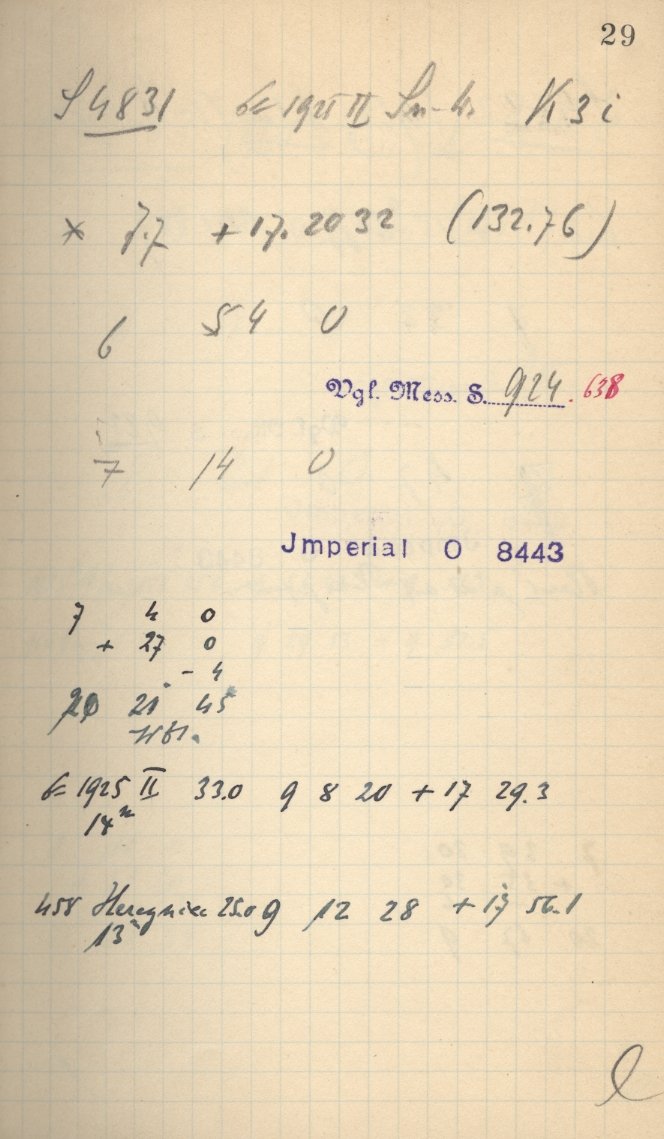 29
S 4831 6= 1925 II K 3 i
* 7.7 +17.2032 (132.76)
6 54 0
Vgl. Mess. S. 924. 638
7 14 0
Jmperial O 8443
7 4 0
+ 27 0
- 4
21 45
6= 1925 II 33.0 9 8 20 +17 29.3
14ᵐ
458 Hercynia 25.0 9 12 28 +17 56.1
13ᵐ